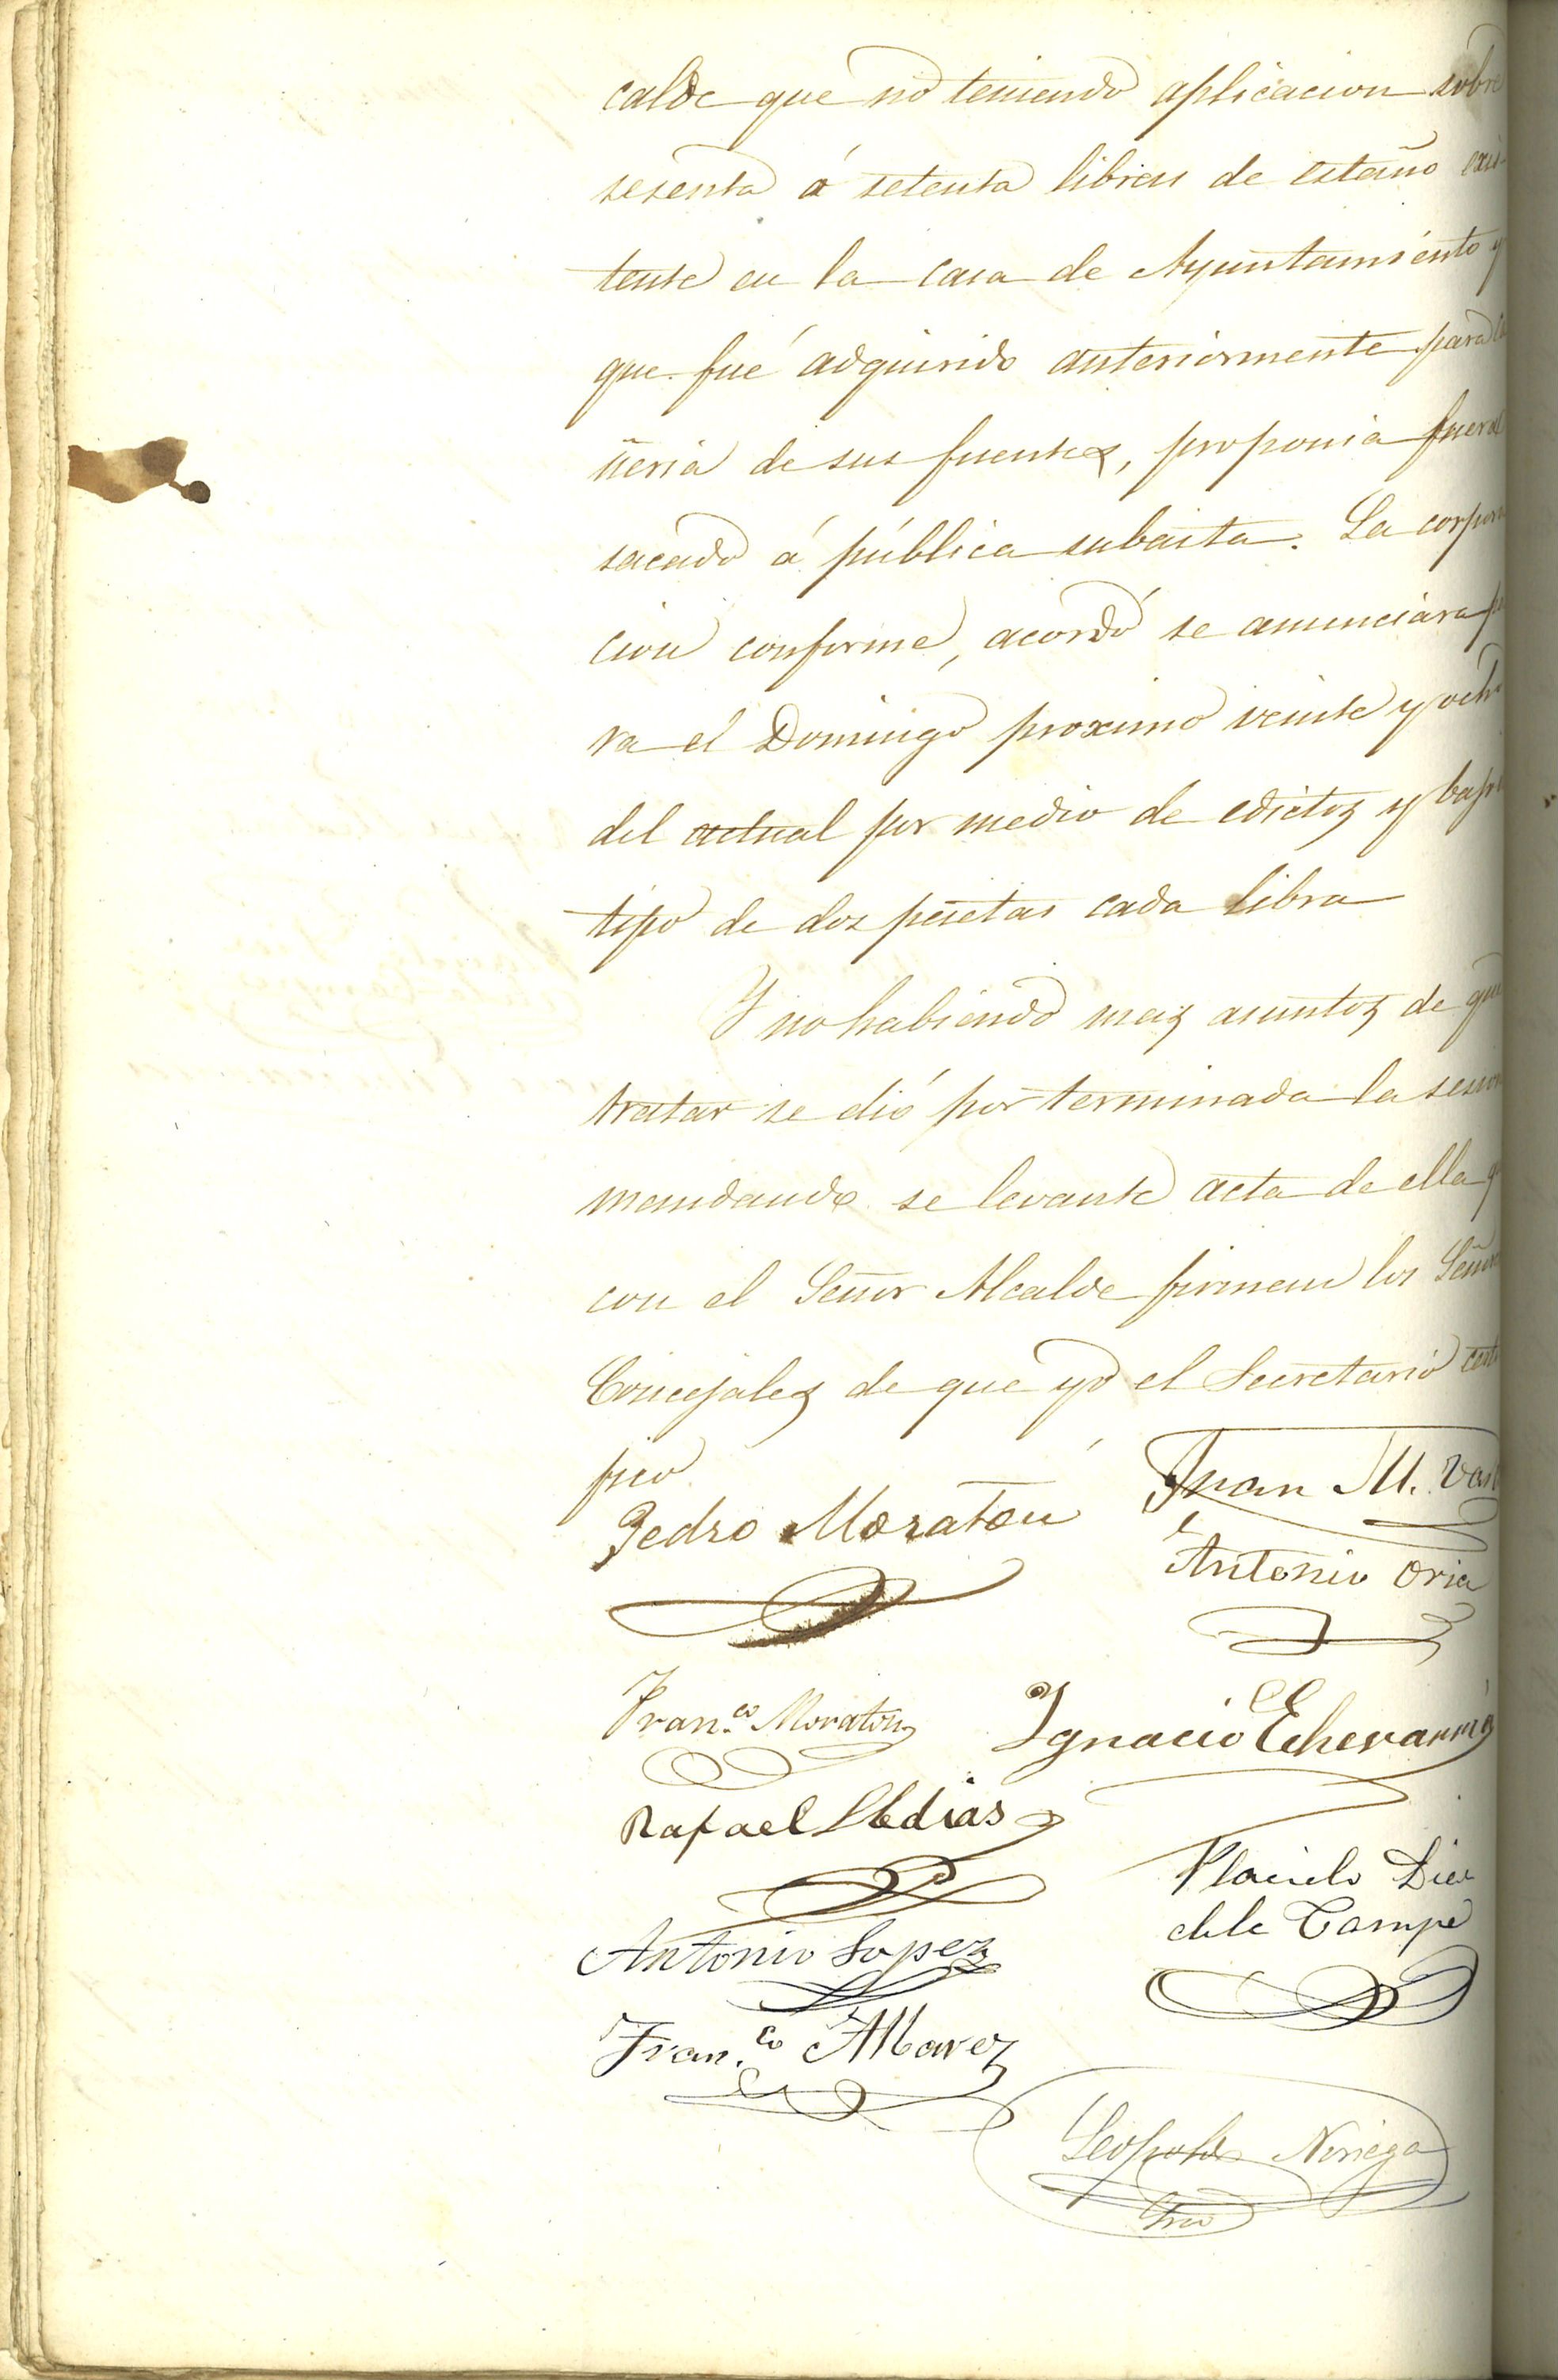 calde que no teniendo aplicacion sobre
sesenta á setenta libras de estaño exis-
tente en la casa de Ayuntamiento y
que fué adquirido anteriormente para ca
ñeria de sus fuentes, proponia fuera
sacado á pública subasta. La corpora
cion conforme, acordó se anunciara pa
ra el Domingo proximo veinte y ocho
del actual por medio de edictos y bajo el
tipo de dos pesetas cada libra
Y no habiendo mas asuntos de que
tratar se dió por terminada la sesion
mandando se levante acta de ella q
con el Señor Alcalde firmen los Señores
Concejales de que yo el Secretario certi
fico
Pedro Moraton Juan M. Vas
Antonio Oria
Fran.co Moraton Ignacio Echevarria
Rafael Lledias
Placido Diez
de la Campa
Antonio Lopez
Fran.co Alvarez
Leopoldo Noriega
Srio